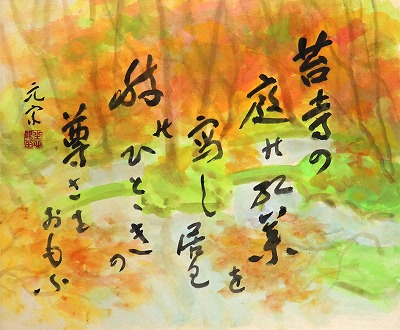 苔寺の
庭の紅葉を
写し居る
のひとときの
尊さを
おもふ
元宋